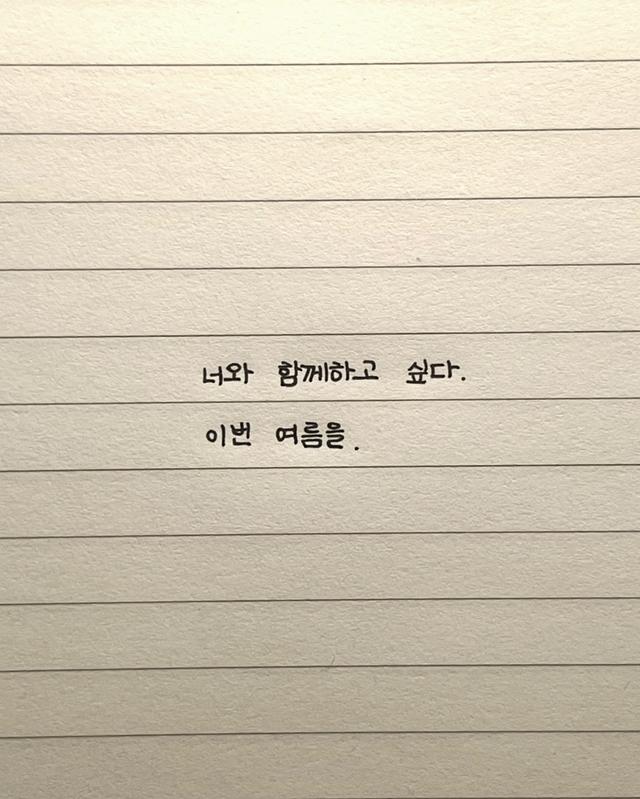 너와 함께하고 싶다.
이번 여름을.